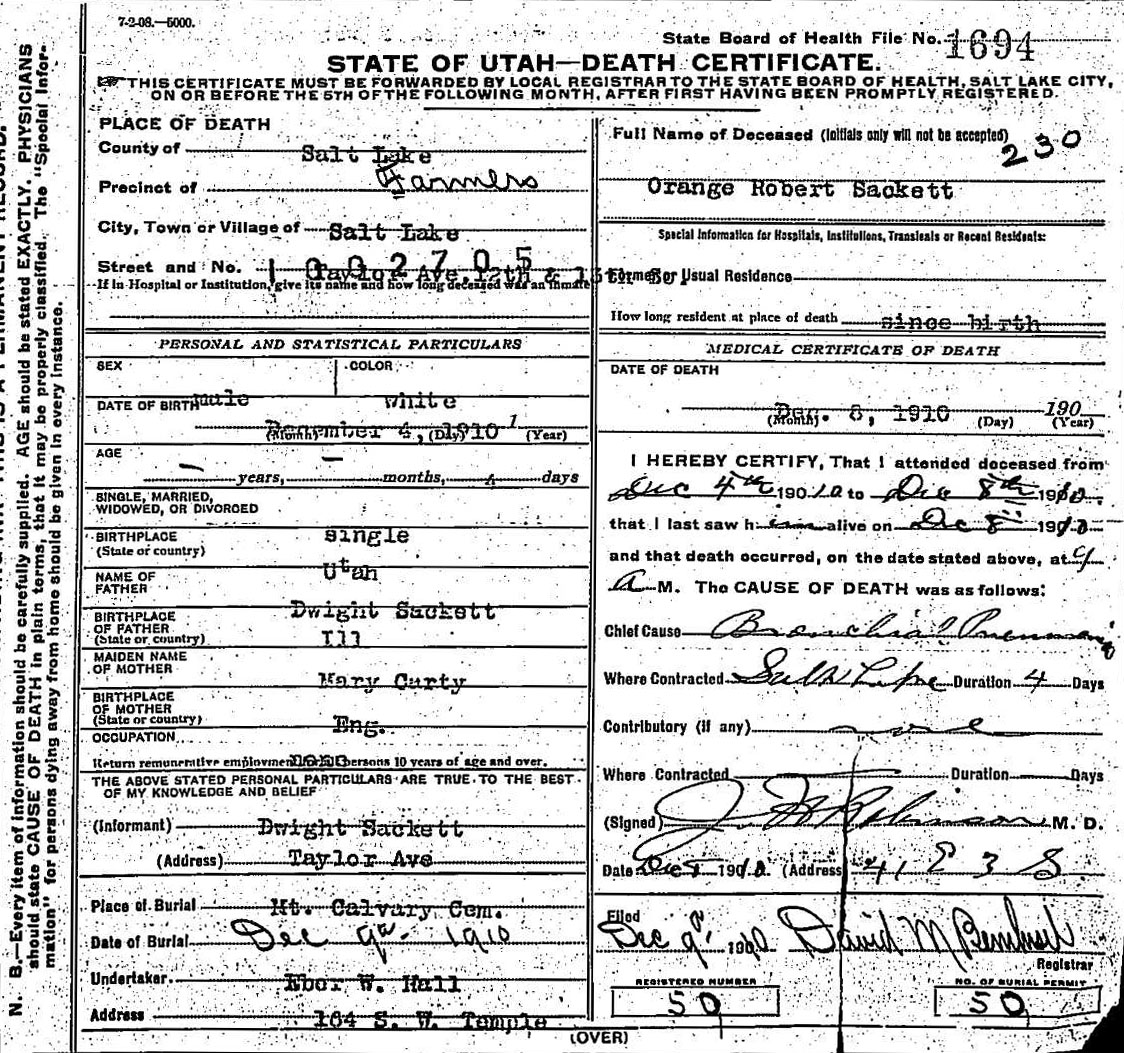 7-2-08.—5000.
State Board of Health File No. 1694
STATE OF UTAH—DEATH CERTIFICATE.
THIS CERTIFICATE MUST BE FORWARDED BY LOCAL REGISTRAR TO THE STATE BOARD OF HEALTH, SALT LAKE CITY,
ON OR BEFORE THE 5TH OF THE FOLLOWING MONTH, AFTER FIRST HAVING BEEN PROMPTLY REGISTERED.
N. B.—Every item of information should be carefully supplied. AGE should be stated EXACTLY. PHYSICIANS
should state CAUSE OF DEATH in plain terms, that it may be properly classified. The "Special Infor-
mation" for persons dying away from home should be given in every instance.
PLACE OF DEATH
County of Salt Lake
Precinct of Farmers
City, Town or Village of Salt Lake
Street and No. Taylor Ave. 12th & 13th So.
1002705
If in Hospital or Institution, give its name and how long deceased was an inmate
PERSONAL AND STATISTICAL PARTICULARS
SEX male
COLOR white
DATE OF BIRTH December 4, 1910
(Month) (Day) 1 (Year)
AGE
— years, — months, 4 days
SINGLE, MARRIED,
WIDOWED, OR DIVORCED
single
BIRTHPLACE
(State or country)
Utah
NAME OF
FATHER
Dwight Sackett
BIRTHPLACE
OF FATHER
(State or country)
Ill
MAIDEN NAME
OF MOTHER
Mary Carty
BIRTHPLACE
OF MOTHER
(State or country)
Eng.
OCCUPATION
none
Return remunerative employment for persons 10 years of age and over.
THE ABOVE STATED PERSONAL PARTICULARS ARE TRUE TO THE BEST
OF MY KNOWLEDGE AND BELIEF
(Informant) Dwight Sackett
(Address) Taylor Ave
Place of Burial Mt. Calvary Cem.
Date of Burial Dec 9th 1910
Undertaker Eber W. Hall
Address 164 S. W. Temple
Full Name of Deceased (Initials only will not be accepted)
230
Orange Robert Sackett
Special Information for Hospitals, Institutions, Transients or Recent Residents:
Former or Usual Residence
How long resident at place of death since birth
MEDICAL CERTIFICATE OF DEATH
DATE OF DEATH
Dec. 8, 1910 190
(Month) (Day) (Year)
I HEREBY CERTIFY, That I attended deceased from
Dec 4th 1910 to Dec 8th 1910
that I last saw him alive on Dec 8" 1910
and that death occurred, on the date stated above, at
A M. The CAUSE OF DEATH was as follows:
Chief Cause Bronchial Pneumonia
Where Contracted Salt Lake Duration 4 Days
Contributory (if any) none
Where Contracted Duration Days
(Signed) J. Robinson M. D.
Date Dec 8 1910 (Address) 41 E 3 S
Filed
Dec 9" 1910 David M
Registrar
REGISTERED NUMBER
59
NO. OF BURIAL PERMIT
59
(OVER)